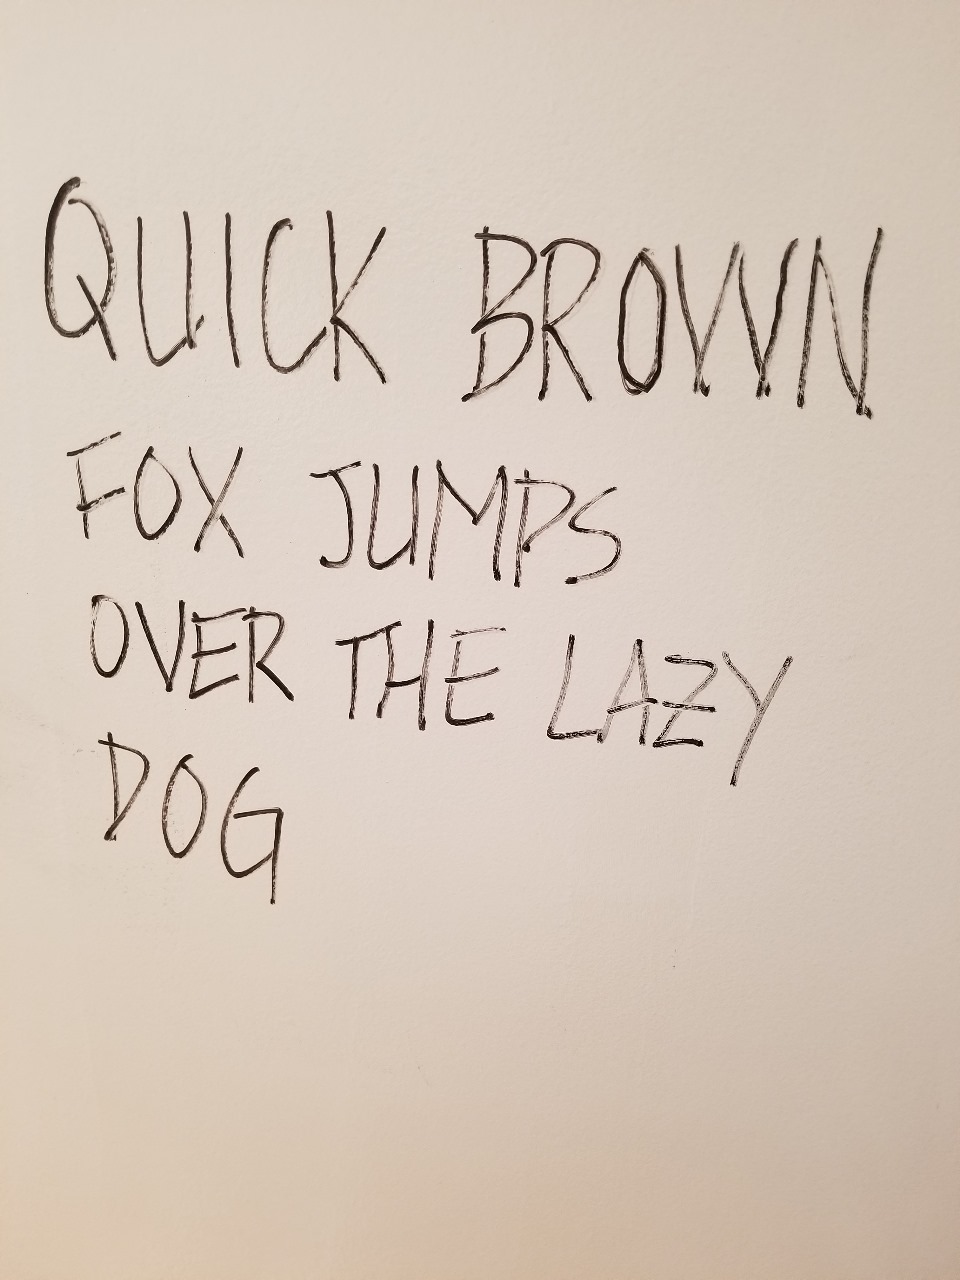 QUICK BROWN
FOX JUMPS
OVER THE LAZY
DOG